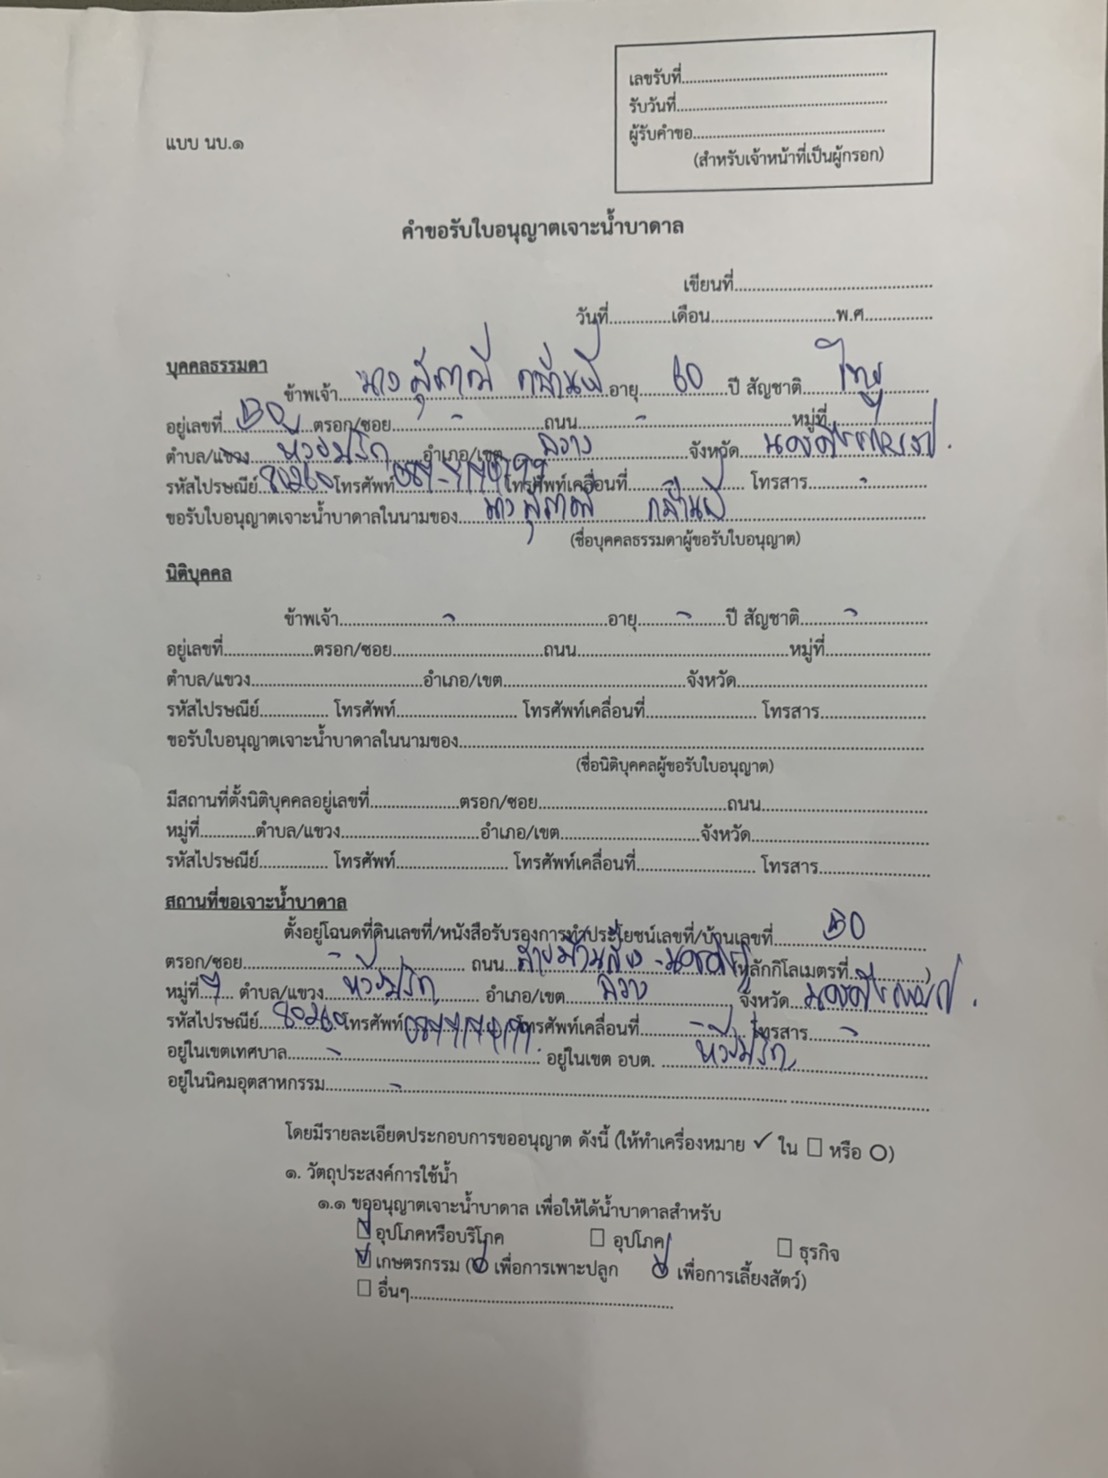 เลขรับที่
รับวันที่
ผู้รับคำขอ
(สำหรับเจ้าหน้าที่เป็นผู้กรอก)
แบบ นบ.๑
คำขอรับใบอนุญาตเจาะน้ำบาดาล
เขียนที่
วันที่ เดือน พ.ศ.
บุคคลธรรมดา
ข้าพเจ้า นาง อายุ 60 ปี สัญชาติ ไทย
อยู่เลขที่ ตรอก/ซอย - ถนน - หมู่ที่
ตำบล/แขวง ห้วยปริก อำเภอ/เขต ฉวาง จังหวัด นครศรีธรรมราช
รหัสไปรษณีย์ 80260 โทรศัพท์ โทรศัพท์เคลื่อนที่ โทรสาร -
ขอรับใบอนุญาตเจาะน้ำบาดาลในนามของ นาง
(ชื่อบุคคลธรรมดาผู้ขอรับใบอนุญาต)
นิติบุคคล
ข้าพเจ้า - อายุ - ปี สัญชาติ -
อยู่เลขที่ ตรอก/ซอย ถนน หมู่ที่
ตำบล/แขวง อำเภอ/เขต จังหวัด
รหัสไปรษณีย์ โทรศัพท์ โทรศัพท์เคลื่อนที่ โทรสาร
ขอรับใบอนุญาตเจาะน้ำบาดาลในนามของ
(ชื่อนิติบุคคลผู้ขอรับใบอนุญาต)
มีสถานที่ตั้งนิติบุคคลอยู่เลขที่ ตรอก/ซอย ถนน
หมู่ที่ ตำบล/แขวง อำเภอ/เขต จังหวัด
รหัสไปรษณีย์ โทรศัพท์ โทรศัพท์เคลื่อนที่ โทรสาร
สถานที่ขอเจาะน้ำบาดาล
ตั้งอยู่โฉนดที่ดินเลขที่/หนังสือรับรองการทำประโยชน์เลขที่/บ้านเลขที่
ตรอก/ซอย - ถนน หลักกิโลเมตรที่
หมู่ที่ 7 ตำบล/แขวง ห้วยปริก อำเภอ/เขต ฉวาง จังหวัด นครศรีธรรมราช
รหัสไปรษณีย์ 80260 โทรศัพท์ โทรศัพท์เคลื่อนที่ - โทรสาร -
อยู่ในเขตเทศบาล - อยู่ในเขต อบต. ห้วยปริก
อยู่ในนิคมอุตสาหกรรม -
โดยมีรายละเอียดประกอบการขออนุญาต ดังนี้ (ให้ทำเครื่องหมาย ✓ ใน □ หรือ ○)
๑. วัตถุประสงค์การใช้น้ำ
๑.๑ ขออนุญาตเจาะน้ำบาดาล เพื่อให้ได้น้ำบาดาลสำหรับ
อุปโภคหรือบริโภค อุปโภค ธุรกิจ
เกษตรกรรม ( เพื่อการเพาะปลูก เพื่อการเลี้ยงสัตว์)
อื่นๆ